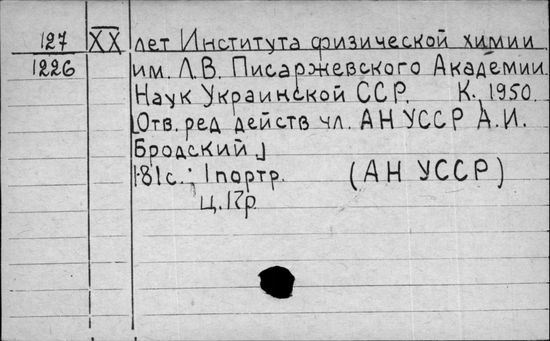 127 XX лет Института физической химии
1226 им. Л.В. Писаржевского Академии
Наук Украинской ССР. К. 1950.
[Отв. ред действ чл. АН УССР А.И.
Бродский]
181с.; 1портр. (АН УССР)
Ц. 12р.